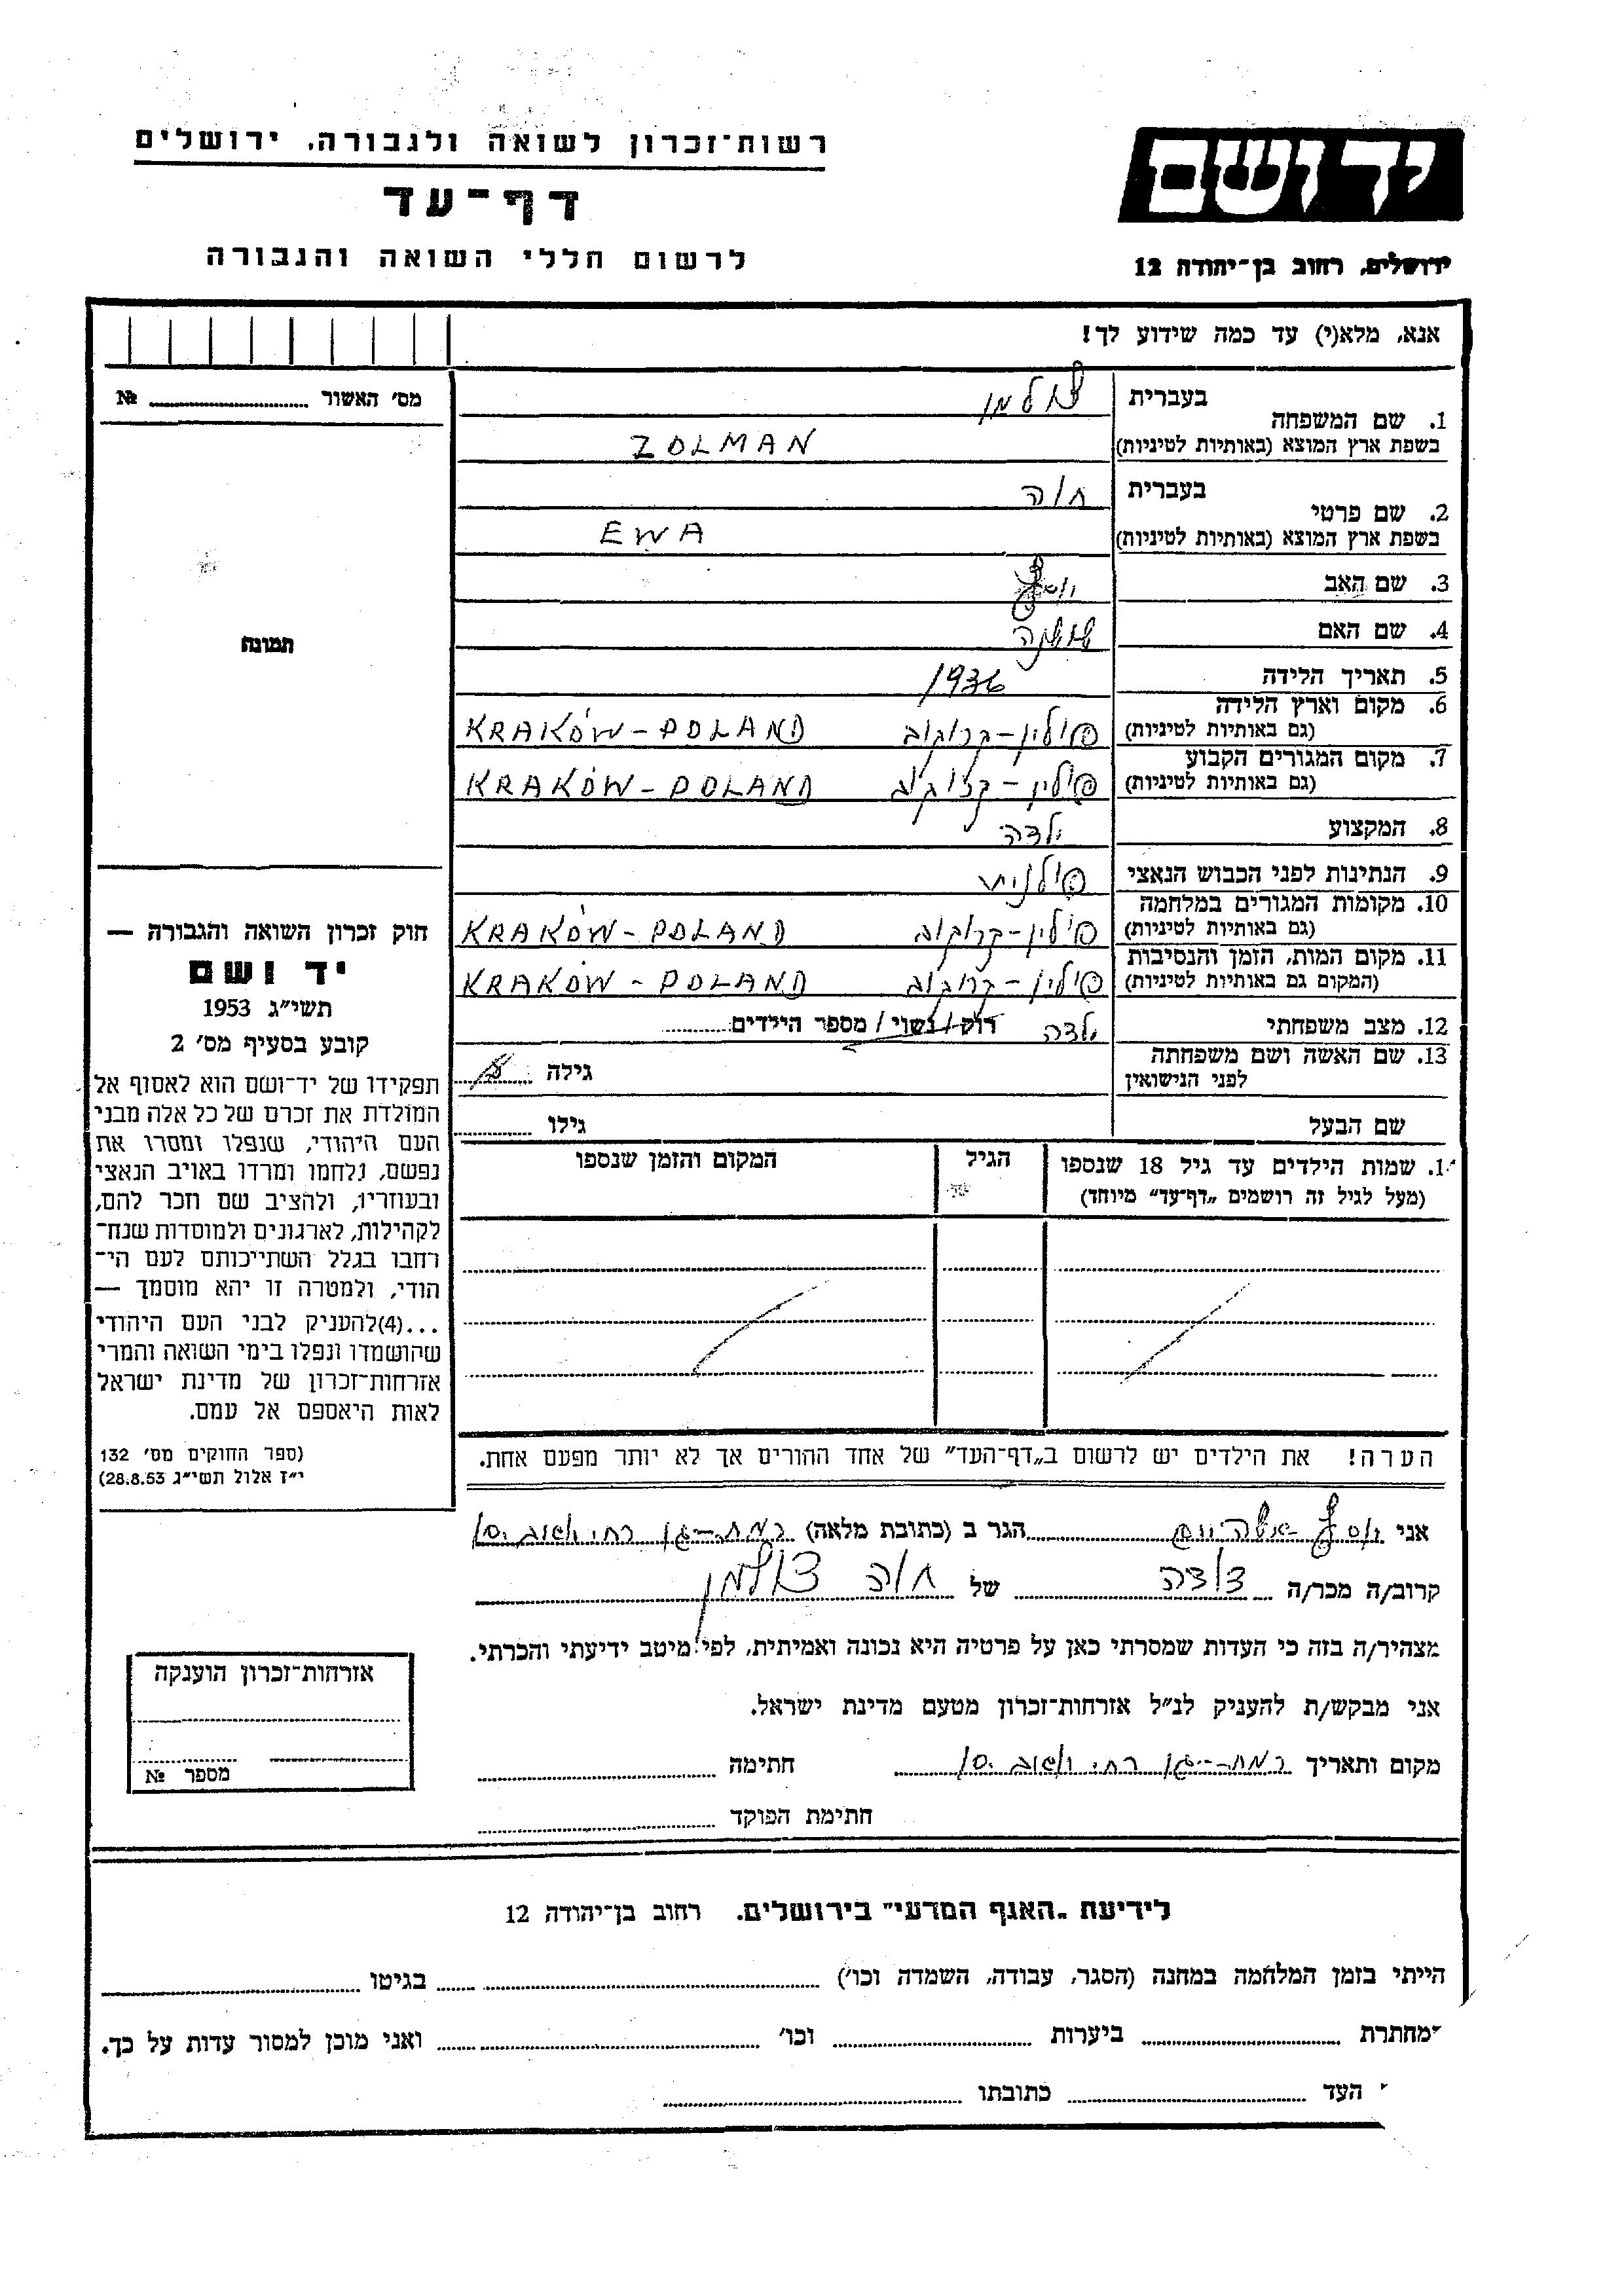 רשות־זכרון לשואה ולגבורה, ירושלים
דף־עד
לרשום חללי השואה והגבורה
יד ושם
ירושלים, רחוב בן־יהודה 12
אנא, מלא(י) עד כמה שידוע לך!
מס׳ האשור № 
1. שם המשפחה
בעברית צולמן
בשפת ארץ המוצא (באותיות לטיניות) ZOLMAN
2. שם פרטי
בעברית חוה
בשפת ארץ המוצא (באותיות לטיניות) EWA
3. שם האב יוסף
4. שם האם שושנה
5. תאריך הלידה 1936
6. מקום וארץ הלידה
(גם באותיות לטיניות) פולין - קרוקוב KRAKÓW - POLAND
7. מקום המגורים הקבוע
(גם באותיות לטיניות) פולין - קרוקוב KRAKÓW - POLAND
8. המקצוע ילדה
9. הנתינות לפני הכבוש הנאצי פולנית
10. מקומות המגורים במלחמה
(גם באותיות לטיניות) פולין - קרוקוב KRAKÓW - POLAND
11. מקום המות, הזמן והנסיבות
(המקום גם באותיות לטיניות) פולין - קרוקוב KRAKÓW - POLAND
12. מצב משפחתי ילדה רוק/נשוי/מספר הילדים
13. שם האשה ושם משפחתה
לפני הנישואין גילה
שם הבעל גילו
תמונה
חוק זכרון השואה והגבורה —
יד ושם
תשי״ג 1953
קובע בסעיף מס׳ 2
תפקידו של יד־ושם הוא לאסוף אל
המולדת את זכרם של כל אלה מבני
העם היהודי, שנפלו ומסרו את
נפשם, נלחמו ומרדו באויב הנאצי
ובעוזריו, ולהציב שם וזכר להם,
לקהילות, לארגונים ולמוסדות שנח־
רבו בגלל השתייכותם לעם הי־
הודי, ולמטרה זו יהא מוסמך —
...(4)להעניק לבני העם היהודי
שהושמדו ונפלו בימי השואה והמרי
אזרחות־זכרון של מדינת ישראל
לאות היאספם אל עמם.
(ספר החוקים מס׳ 132
י״ז אלול תשי״ג 28.8.53)
1. שמות הילדים עד גיל 18 שנספו
(מעל לגיל זה רושמים „דף־עד״ מיוחד)
הגיל
המקום והזמן שנספו
הערה! את הילדים יש לרשום ב„דף־העד״ של אחד ההורים אך לא יותר מפעם אחת.
אני יוסף הגר ב (כתובת מלאה) רמת-גן רח׳
קרוב/ה מכר/ה דודה של חוה צולמן
מצהיר/ה בזה כי העדות שמסרתי כאן על פרטיה היא נכונה ואמיתית, לפי מיטב ידיעתי והכרתי.
אני מבקש/ת להעניק לנ״ל אזרחות־זכרון מטעם מדינת ישראל.
מקום ותאריך רמת-גן רח׳ חתימה
חתימת הפוקד
אזרחות־זכרון הוענקה
מספר №
לידיעת „האגף המדעי״ בירושלים, רחוב בן־יהודה 12
הייתי בזמן המלחמה במחנה (הסגר, עבודה, השמדה וכו׳) בגיטו
מחתרת ביערות וכו׳ ואני מוכן למסור עדות על כך.
העד כתובתו